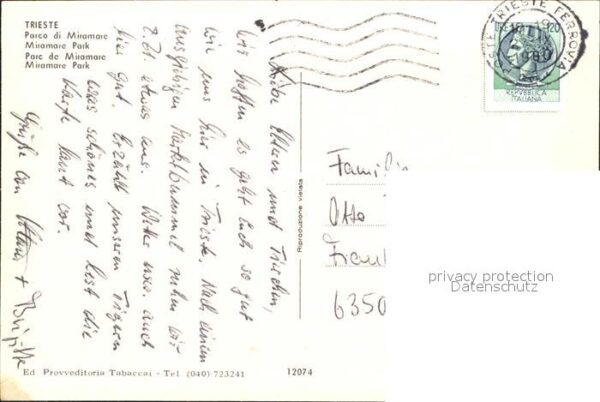 TRIESTE
Parco di Miramare
Miramare Park
Parc de Miramare
Miramare Park
Liebe Eltern und
wir hoffen es geht Euch so gut
wie uns hier in Trieste. Nach einem
ausgiebigen Marktbummel ruhen wir
z. Zt. etwas aus. auch
hier gut. Erzählt unseren
was schönes und lest die
Karte laut vor.
Grüße von Klaus + Brigitte
Riproduzione vietata
LIRE 120
REPVBBLICA
ITALIANA
TRIESTE FERROVIA
1980
Familie
Otto
6350
privacy protection
Datenschutz
Ed Provveditoria Tabaccai - Tel (040) 723241
12074